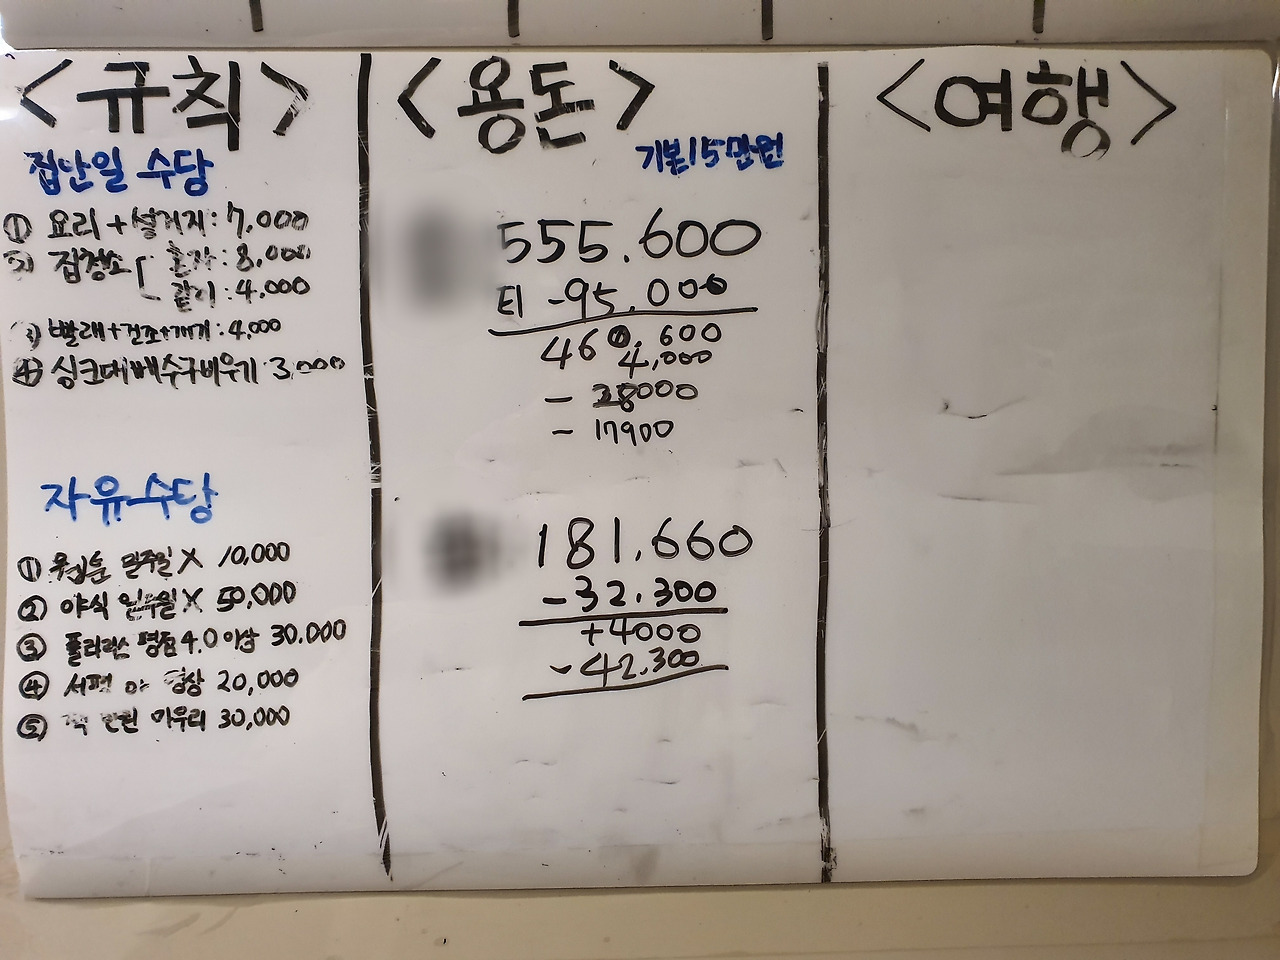 <규칙>
집안일 수당
① 요리 + 설거지 : 7,000
② 집청소 [ 혼자 : 8,000
같이 : 4,000
③ 빨래+건조+개기 : 4,000
④ 싱크대배수구비우기 3,000
자유수당
① 일주일 X 10,000
② 야식 일주일 X 50,000
③ 평점 4.0 이상 30.000
④ 서평 영상 20,000
⑤ 마무리 30,000
<용돈>
기본15만원
555.600
티 -95.000
460.600
4,000
- 38000
- 17900
181.660
-32.300
+4000
-42.300
<여행>